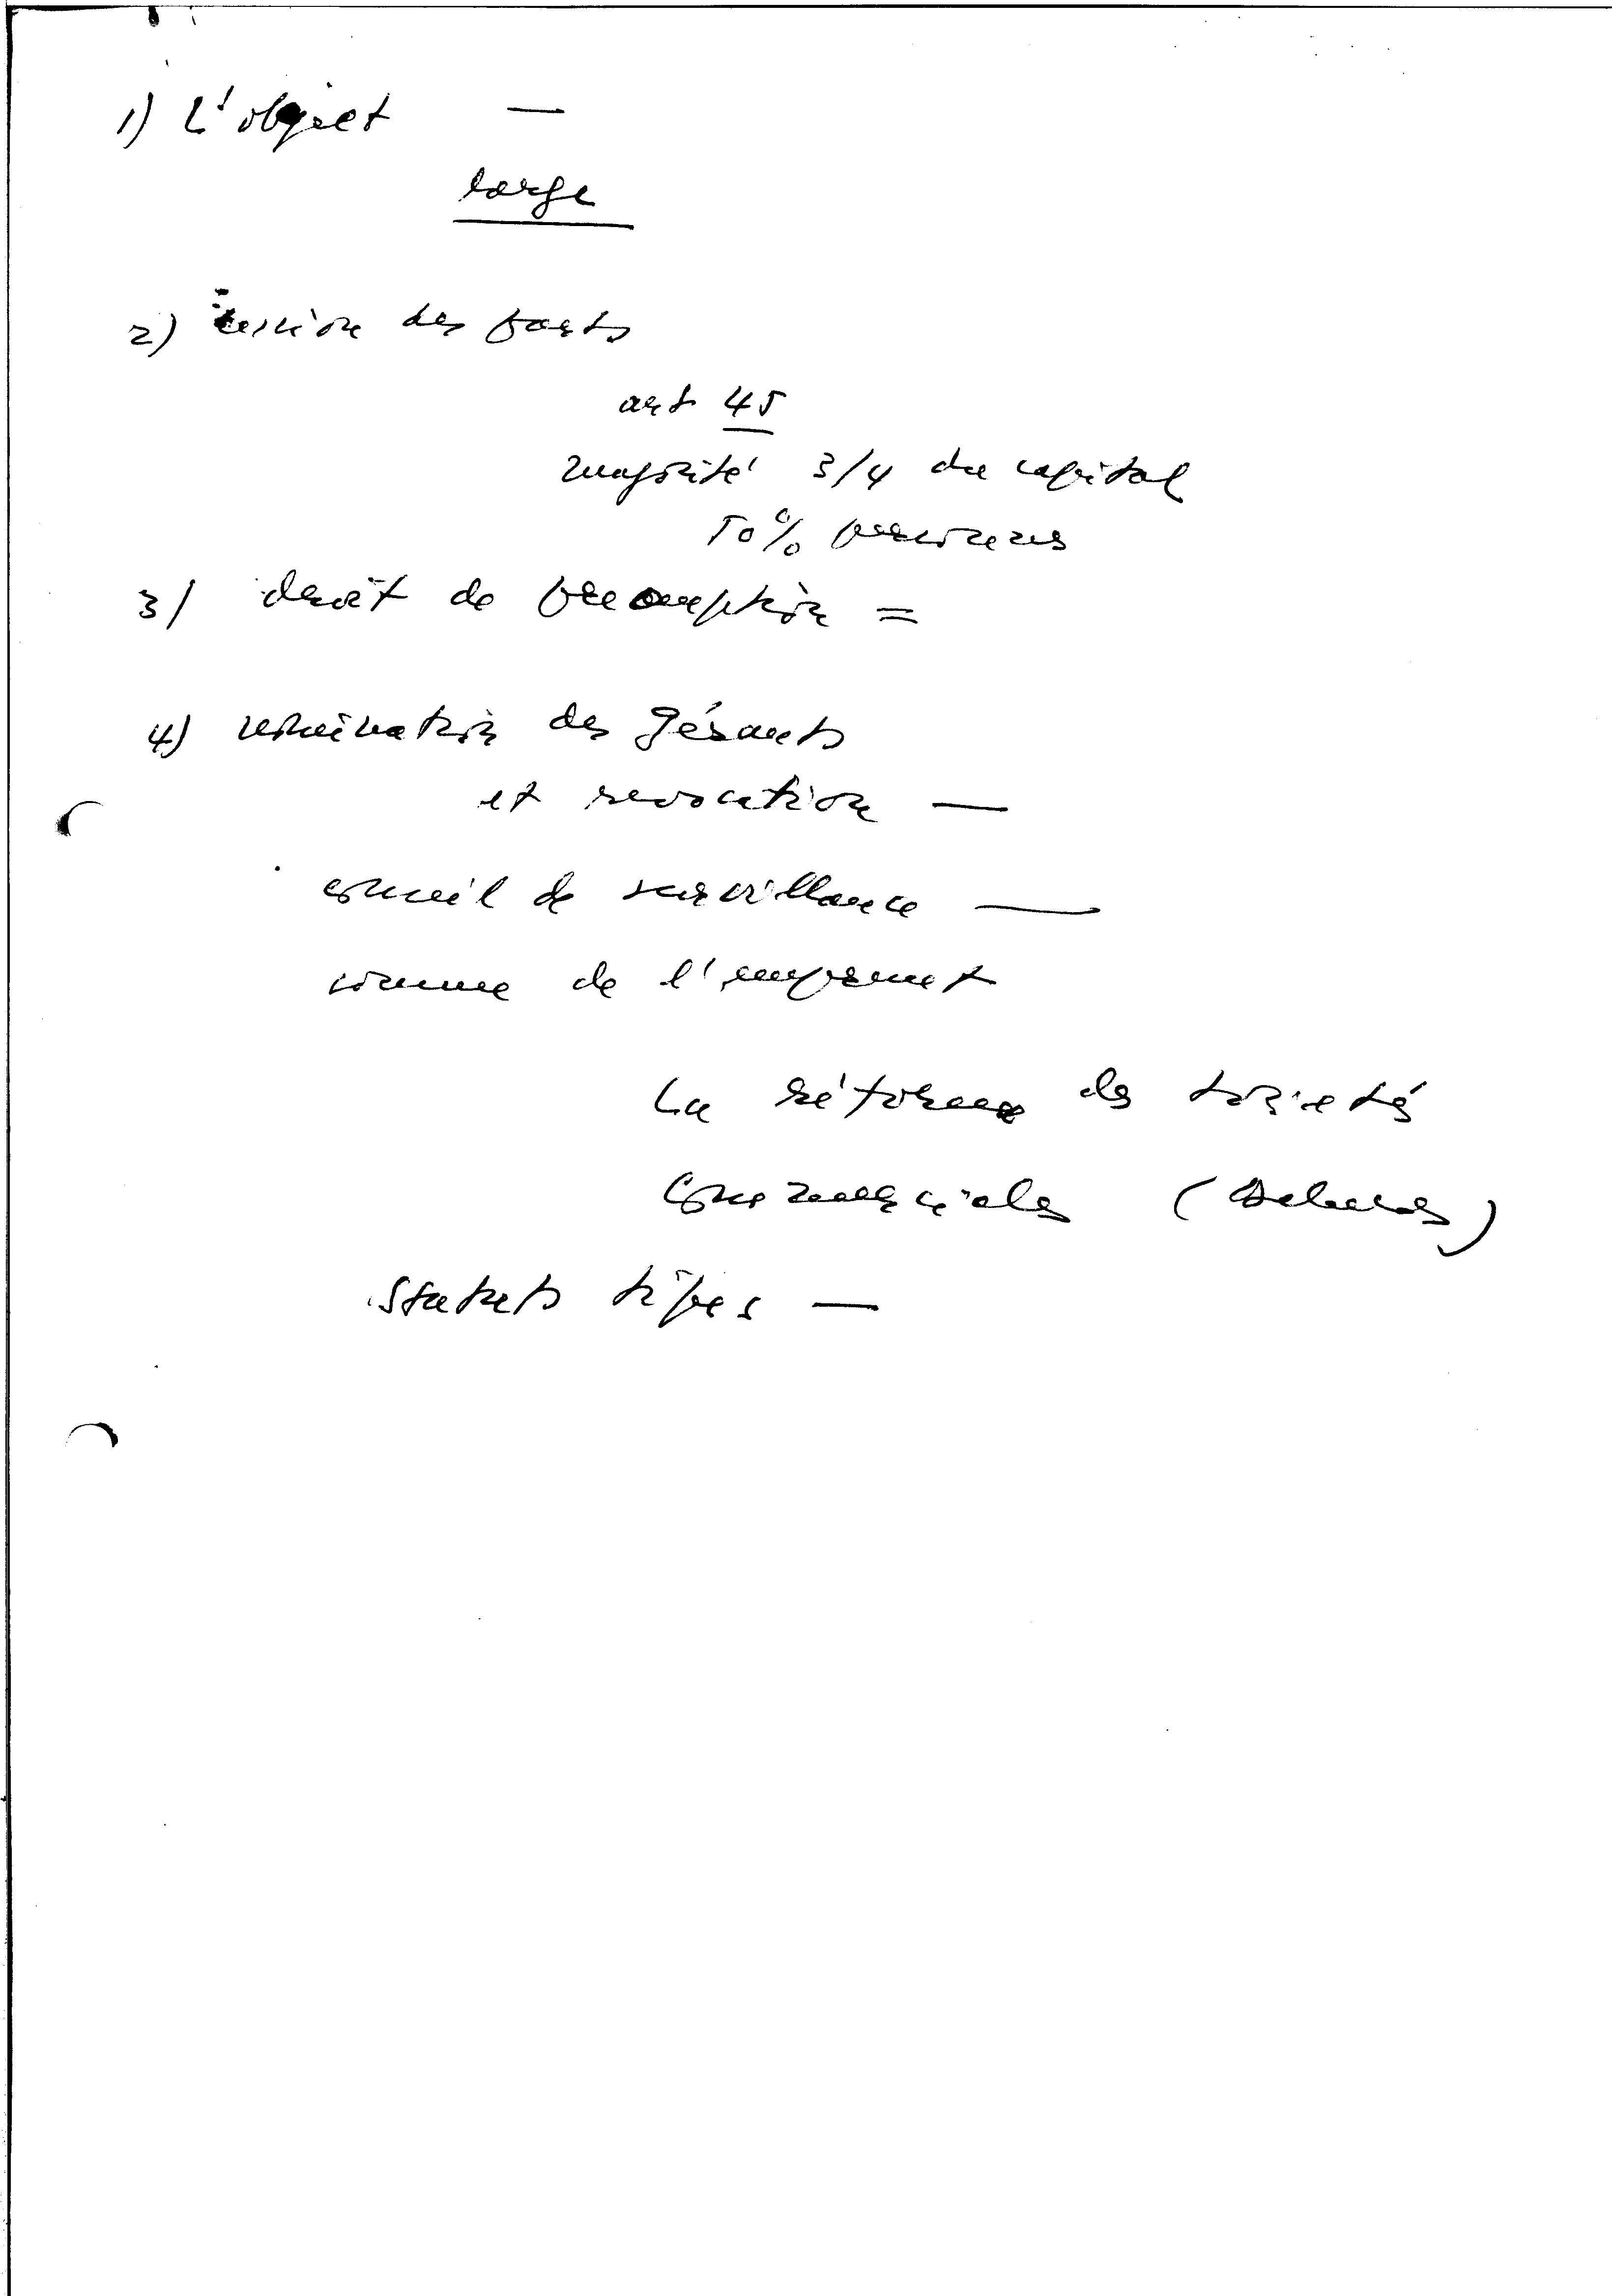 1) L'objet —
large
2) cession des parts
art 45
majorité 3/4 du capital
50% personnes
3) droit de preemption =
4) nomination des gérants
et revocation —
conseil de surveillance —
comme de l'emprunt
La réforme des sociétés
commerciales (Delmas)
statuts tipes —